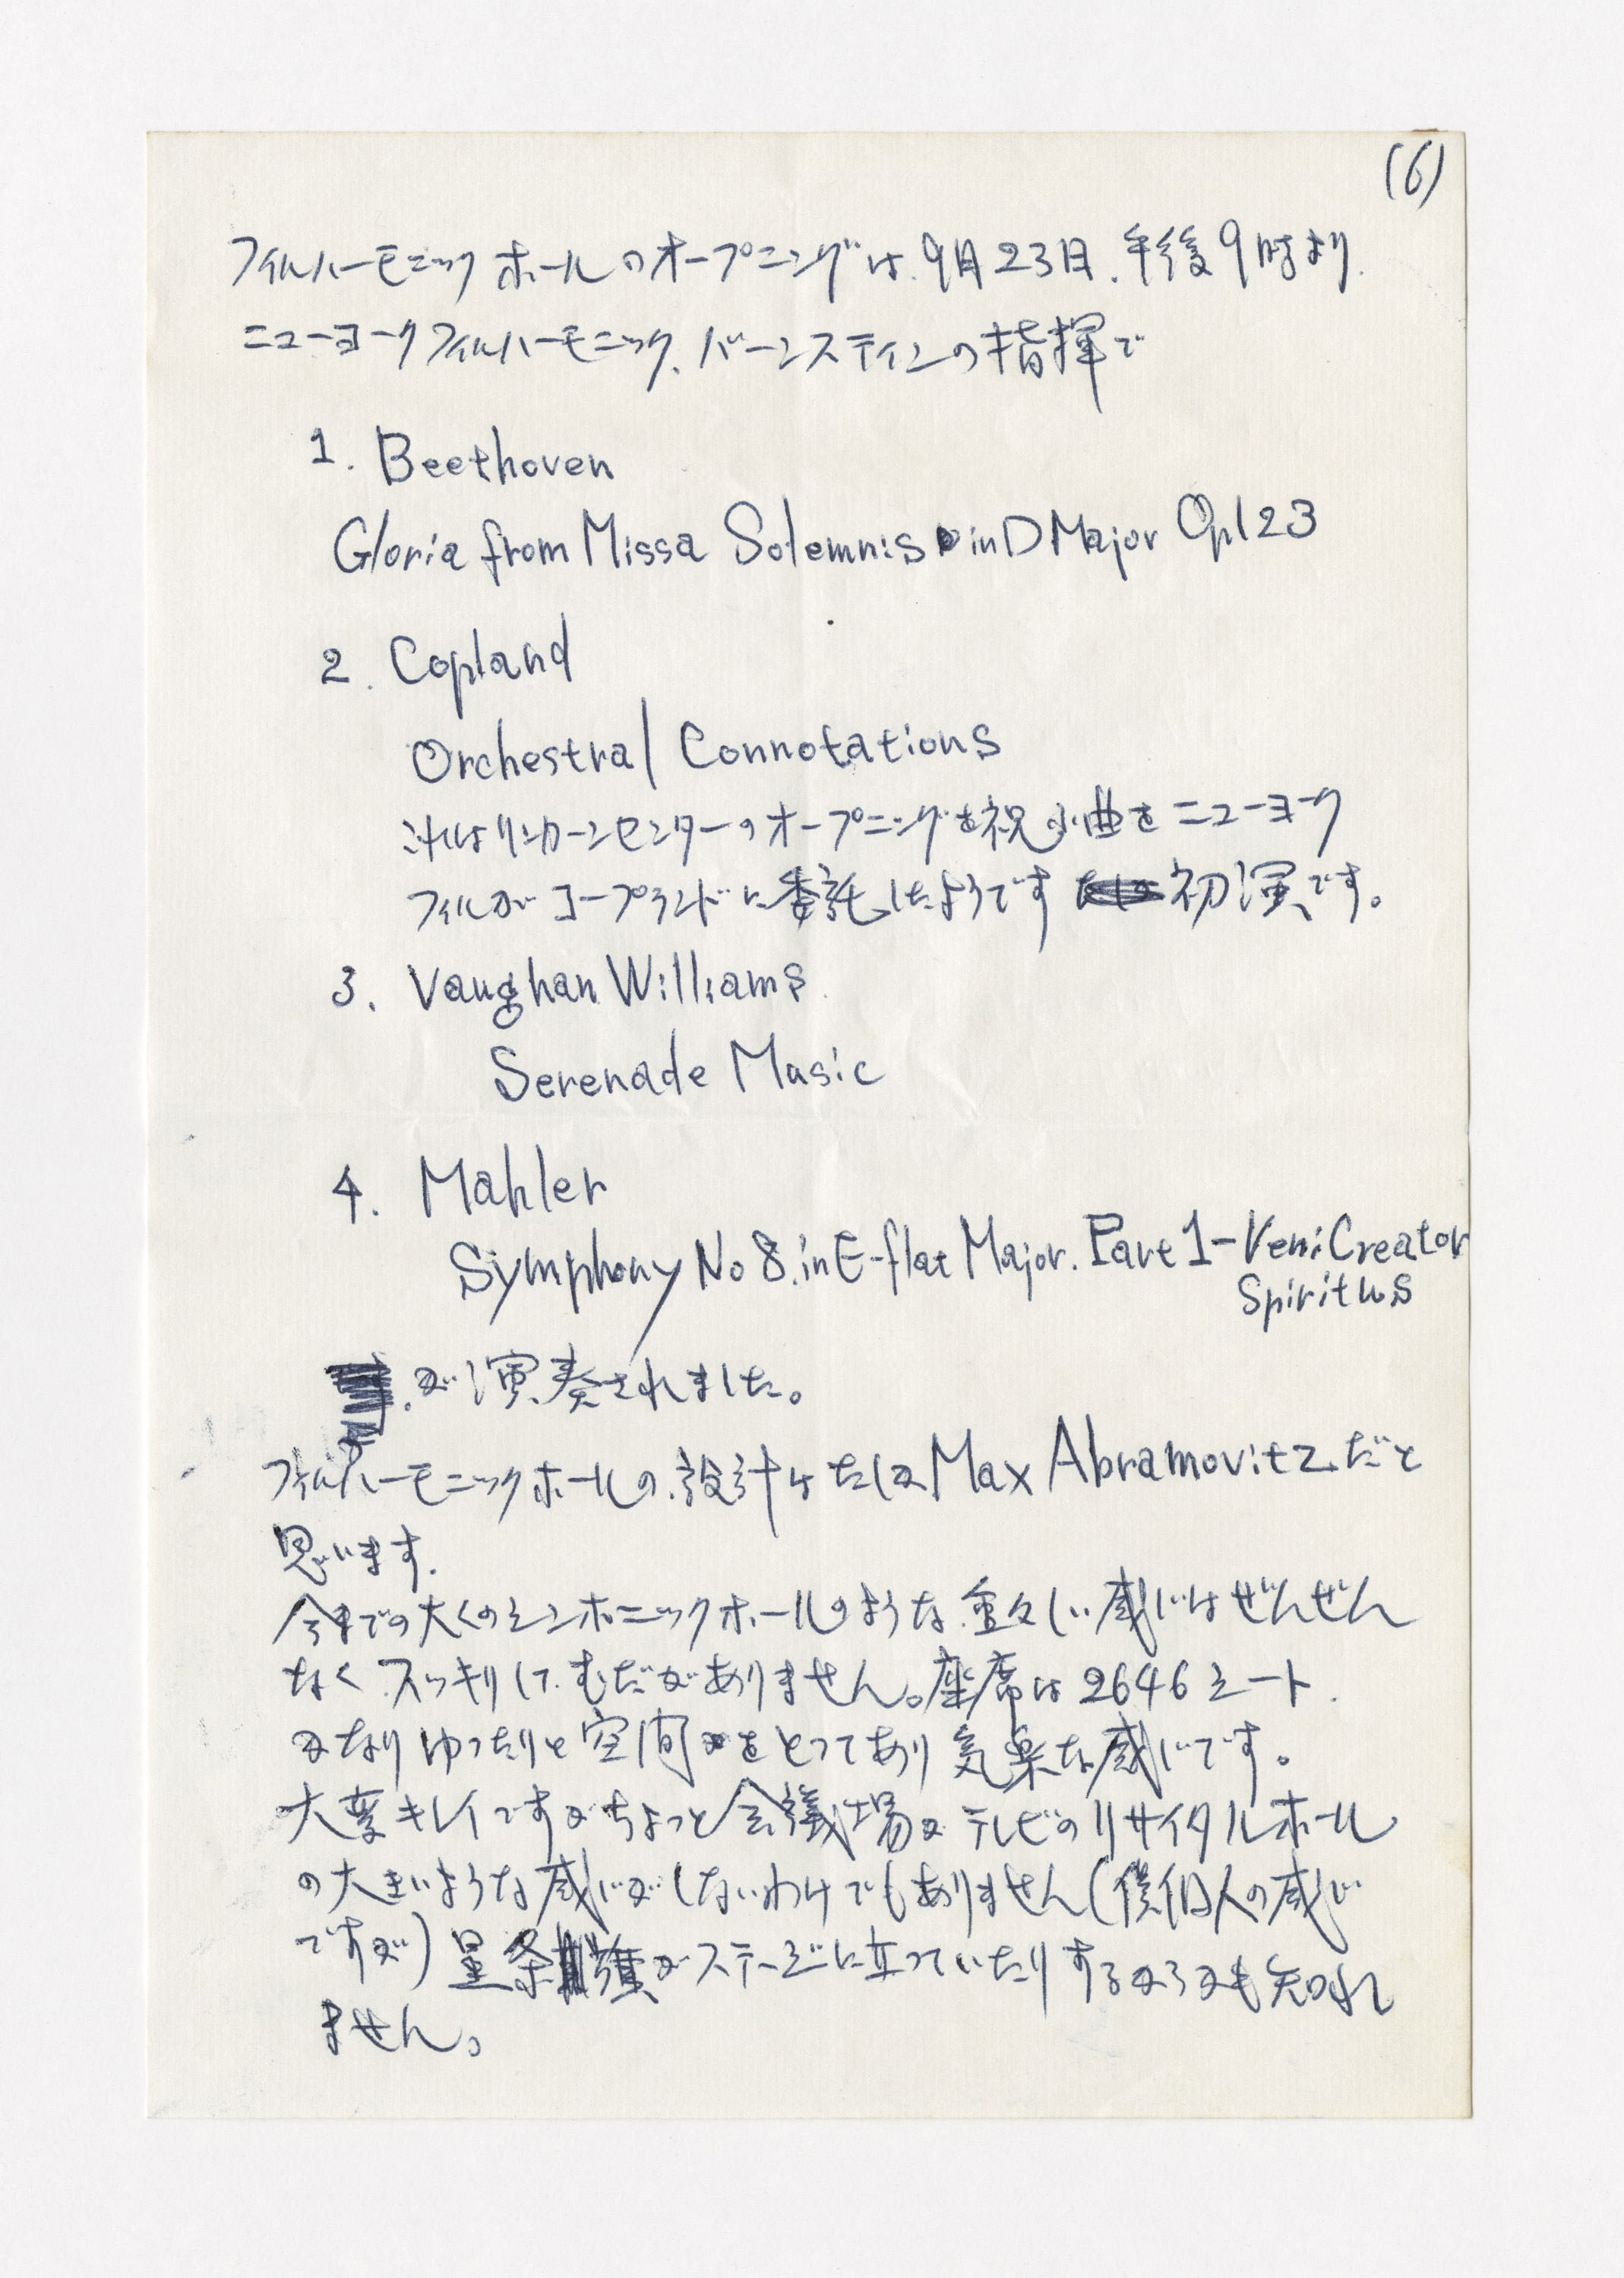 (6)
フィルハーモニック ホールのオープニングは、9月23日、午後9時より、
ニューヨークフィルハーモニック、バーンスティンの指揮で
1. Beethoven
Gloria from Missa Solemnis in D Major Op123
2. Copland
Orchestral Connotations
これはリンカーンセンターのオープニングを祝ふ曲をニューヨーク
フィルがコープランドに委託したようです 初演です。
3. Vaughan Williams
Serenade Music
4. Mahler
Symphony No 8. in E-flat Major. Part 1-Veni Creator
Spiritus
が演奏されました。
フィルハーモニックホールの設計はたしかMax Abramovitzだと
思います.
今までの大くのシンホニックホールのような重々しい感じはぜんぜん
なくスッキリしてむだがありません。座席は2646シート.
かなりゆったりと空間をとってあり気楽な感じです。
大変キレイですがちょっと会議場かテレビのリサイタルホール
の大きいような感じがしないわけでもありません(僕個人の感じ
ですが)星条旗がステージに立っていたりするからかも知れ
ません。